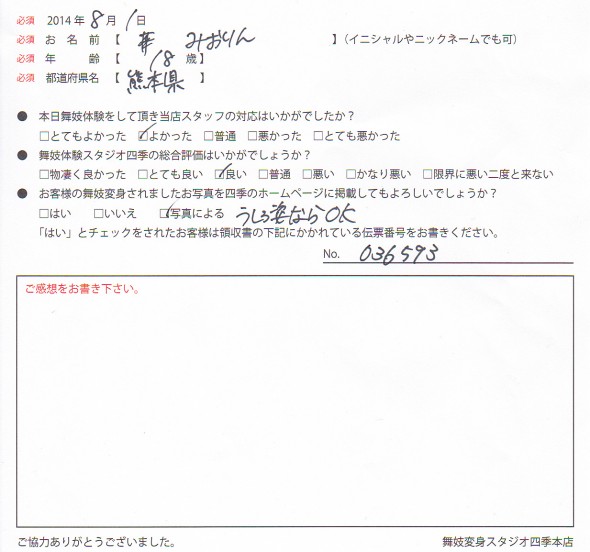 必須 2014年 8月 1日
必須 お名前【 華 みおりん 】(イニシャルやニックネームでも可)
必須 年 齢【 18 歳】
必須 都道府県名【 熊本県 】
● 本日舞妓体験をして頂き当店スタッフの対応はいかがでしたか?
□とてもよかった ☑よかった □普通 □悪かった □とても悪かった
● 舞妓体験スタジオ四季の総合評価はいかがでしょうか?
□物凄く良かった □とても良い ☑良い □普通 □悪い □かなり悪い □限界に悪い二度と来ない
● お客様の舞妓変身されましたお写真を四季のホームページに掲載してもよろしいでしょうか?
□はい □いいえ ☑写真による うしろ姿ならOK
「はい」とチェックをされたお客様は領収書の下記にかかれている伝票番号をお書きください。
No. 036593
ご感想をお書き下さい。
ご協力ありがとうございました。 舞妓変身スタジオ四季本店